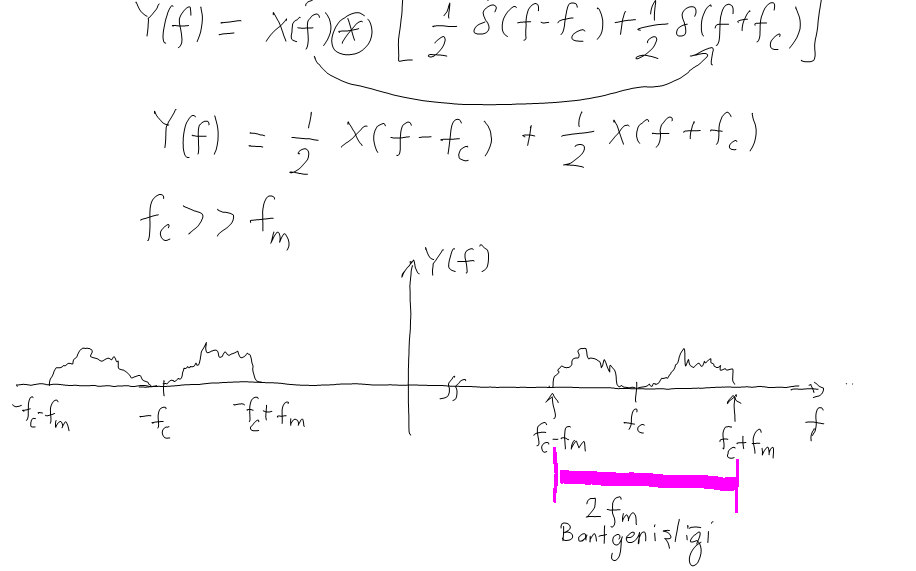 Y(f) = X(f) ⊛ [ 1/2 δ(f-fc) + 1/2 δ(f+fc) ]
Y(f) = 1/2 X(f-fc) + 1/2 X(f+fc)
fc >> fm
Y(f)
-fc-fm -fc -fc+fm fc-fm fc fc+fm f
2fm
Bantgenişliği